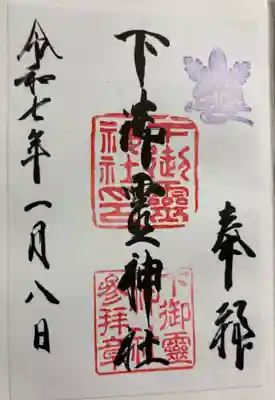 奉拝
下御霊神社
下御靈神社印
下御靈神社参拝章
令和七年一月八日